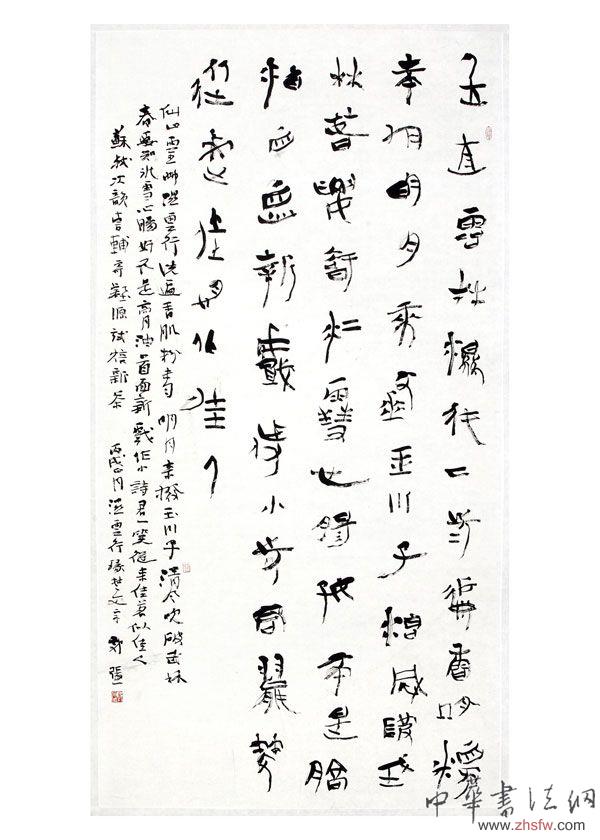 仙山靈草濕行雲洗遍香肌粉
未勻明月來投玉川子清風吹破武
林春要知冰雪心腸好不是膏
油首面新戲作小詩君一笑
從來佳茗似佳人
仙山靈草濕雲行洗遍香肌粉未勻明月來投玉川子清風吹破武林
春要知冰雪心腸好不是膏油首面新戲作小詩君一笑從來佳茗似佳人
蘇軾次韻曹輔寄壑源試焙新茶 丙戌四月 楚文字
中華書法網
www.zhsfw.com